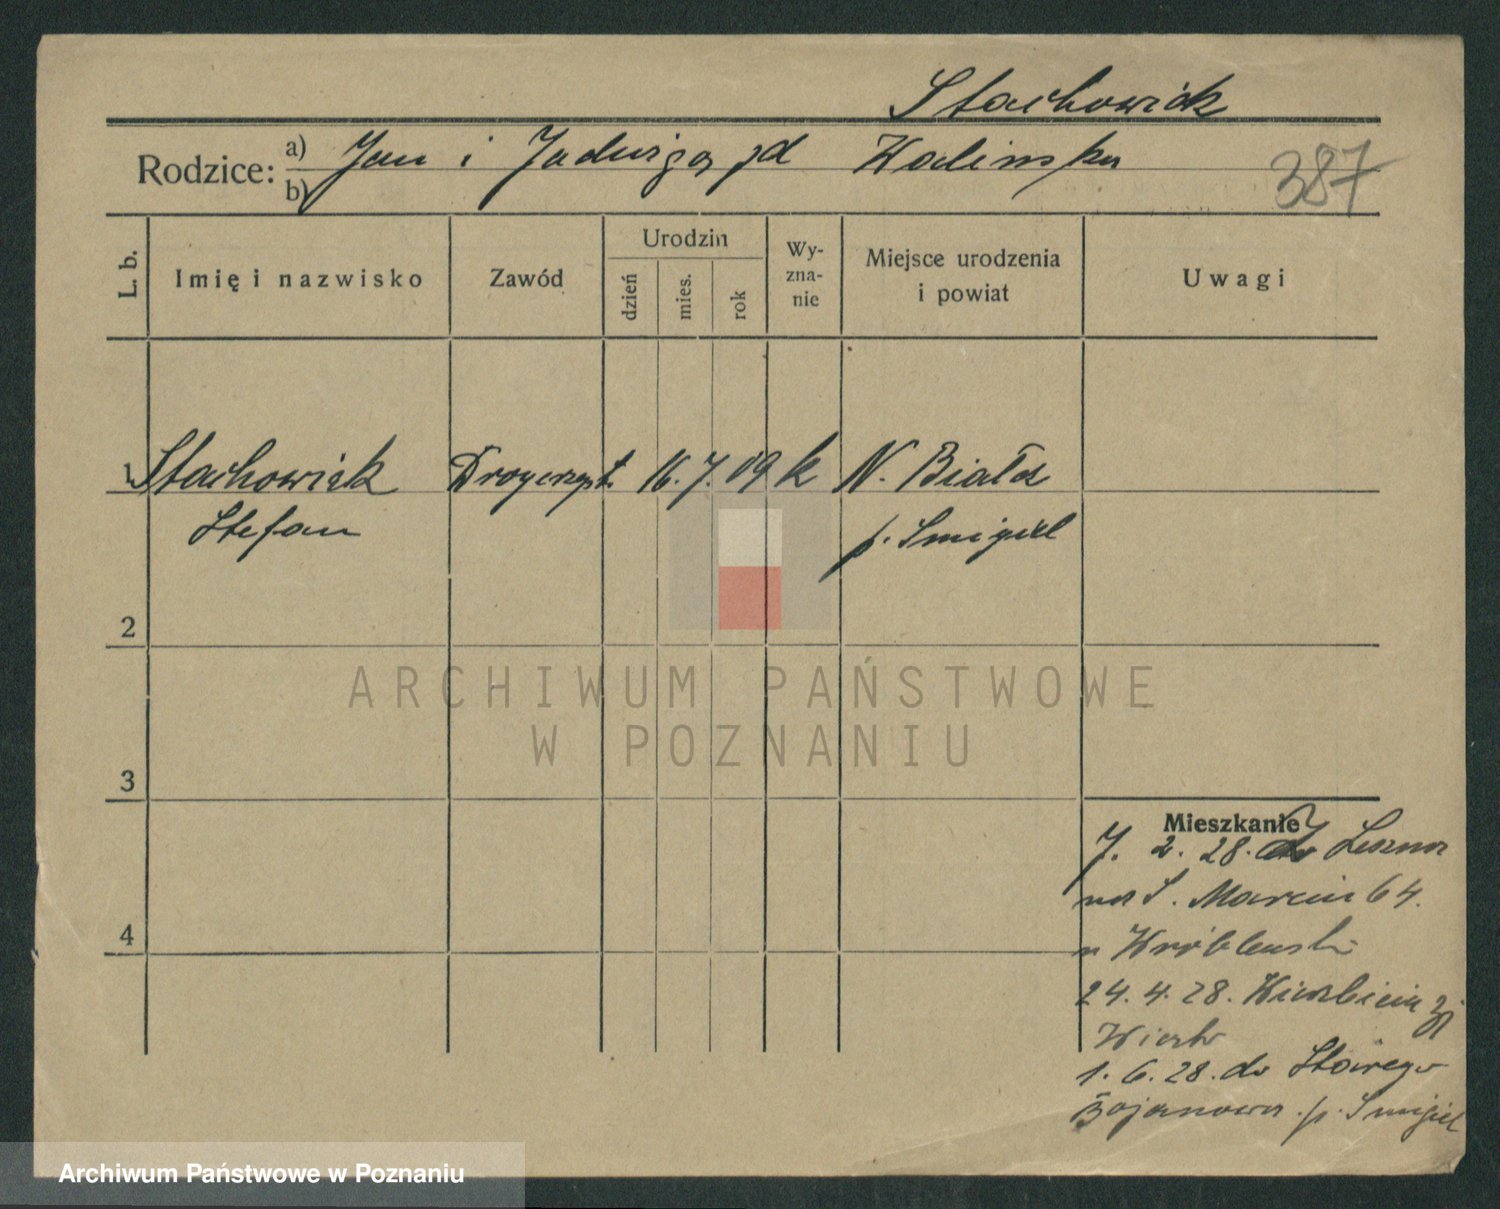 Stachowiak
Rodzice: a) Jan i Jadwiga zd Kalinska
b)
387
L. b.
Imię i nazwisko
Zawód
Urodzin
dzień
mies.
rok
Wy-
zna-
nie
Miejsce urodzenia
i powiat
Uwagi
1 Stachowiak Drogerzyst. 16. 7. 09 k N. Białcz
Stefan p. Smigiel
2
3
4
Mieszkanie
7. 2. 28. z Leszna
na S. Marcin 64.
u Wróblewski
24. 4. 28.
1. 6. 28. do Starego
Bojanowa p. Smigiel
ARCHIWUM PAŃSTWOWE
W POZNANIU
Archiwum Państwowe w Poznaniu